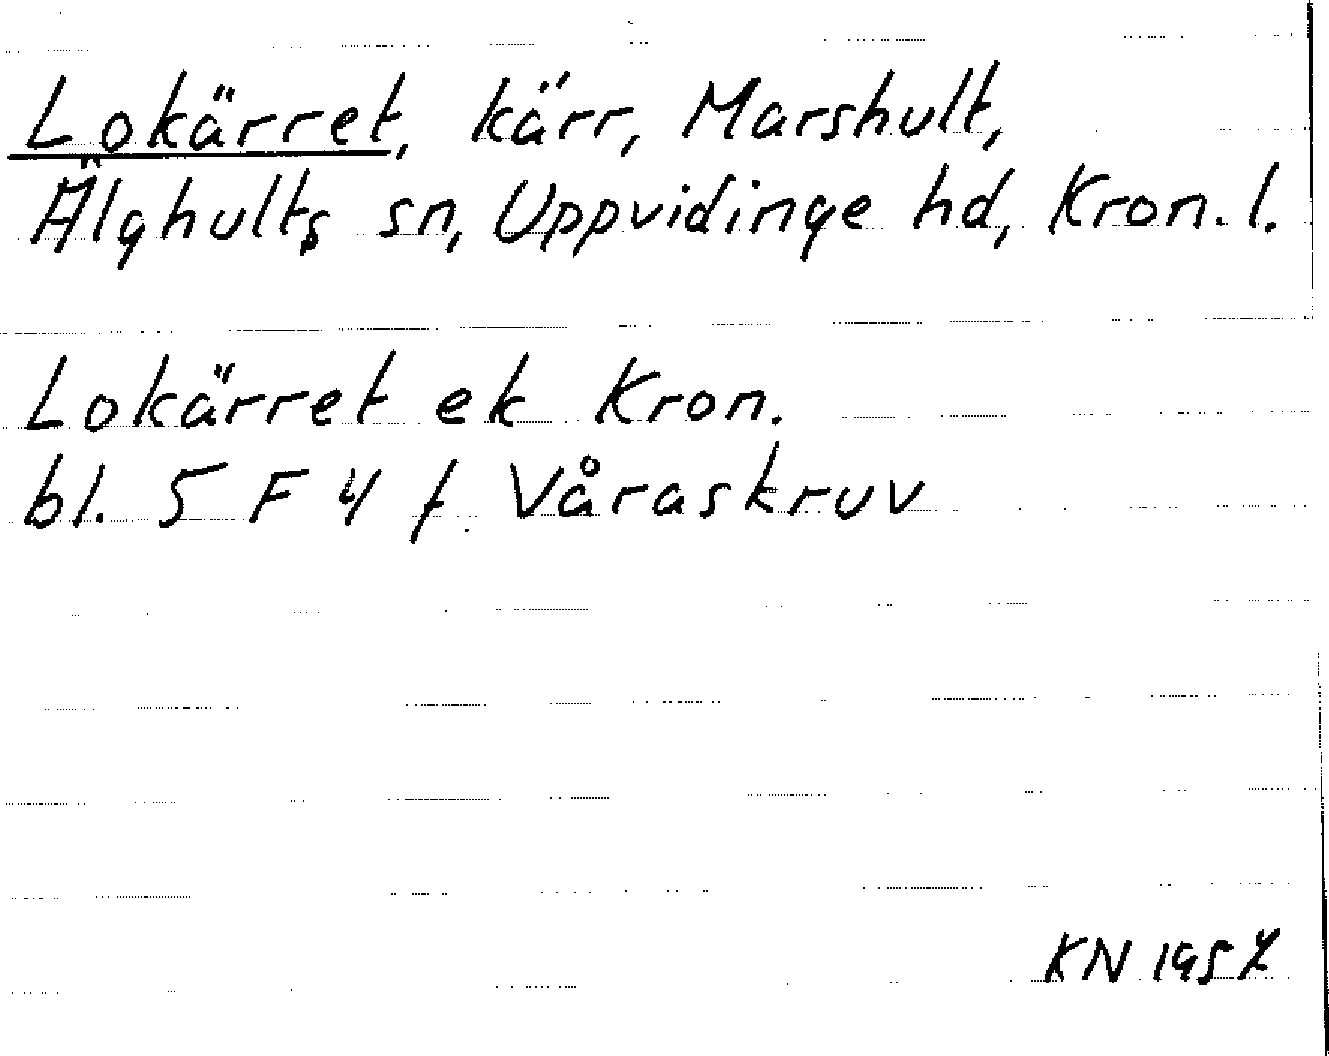 Lokärret, kärr, Marshult,
Älghults sn, Uppvidinge hd, Kron. l.
Lokärret ek Kron.
bl. 5 F 4 f Våraskruv
KN 1957